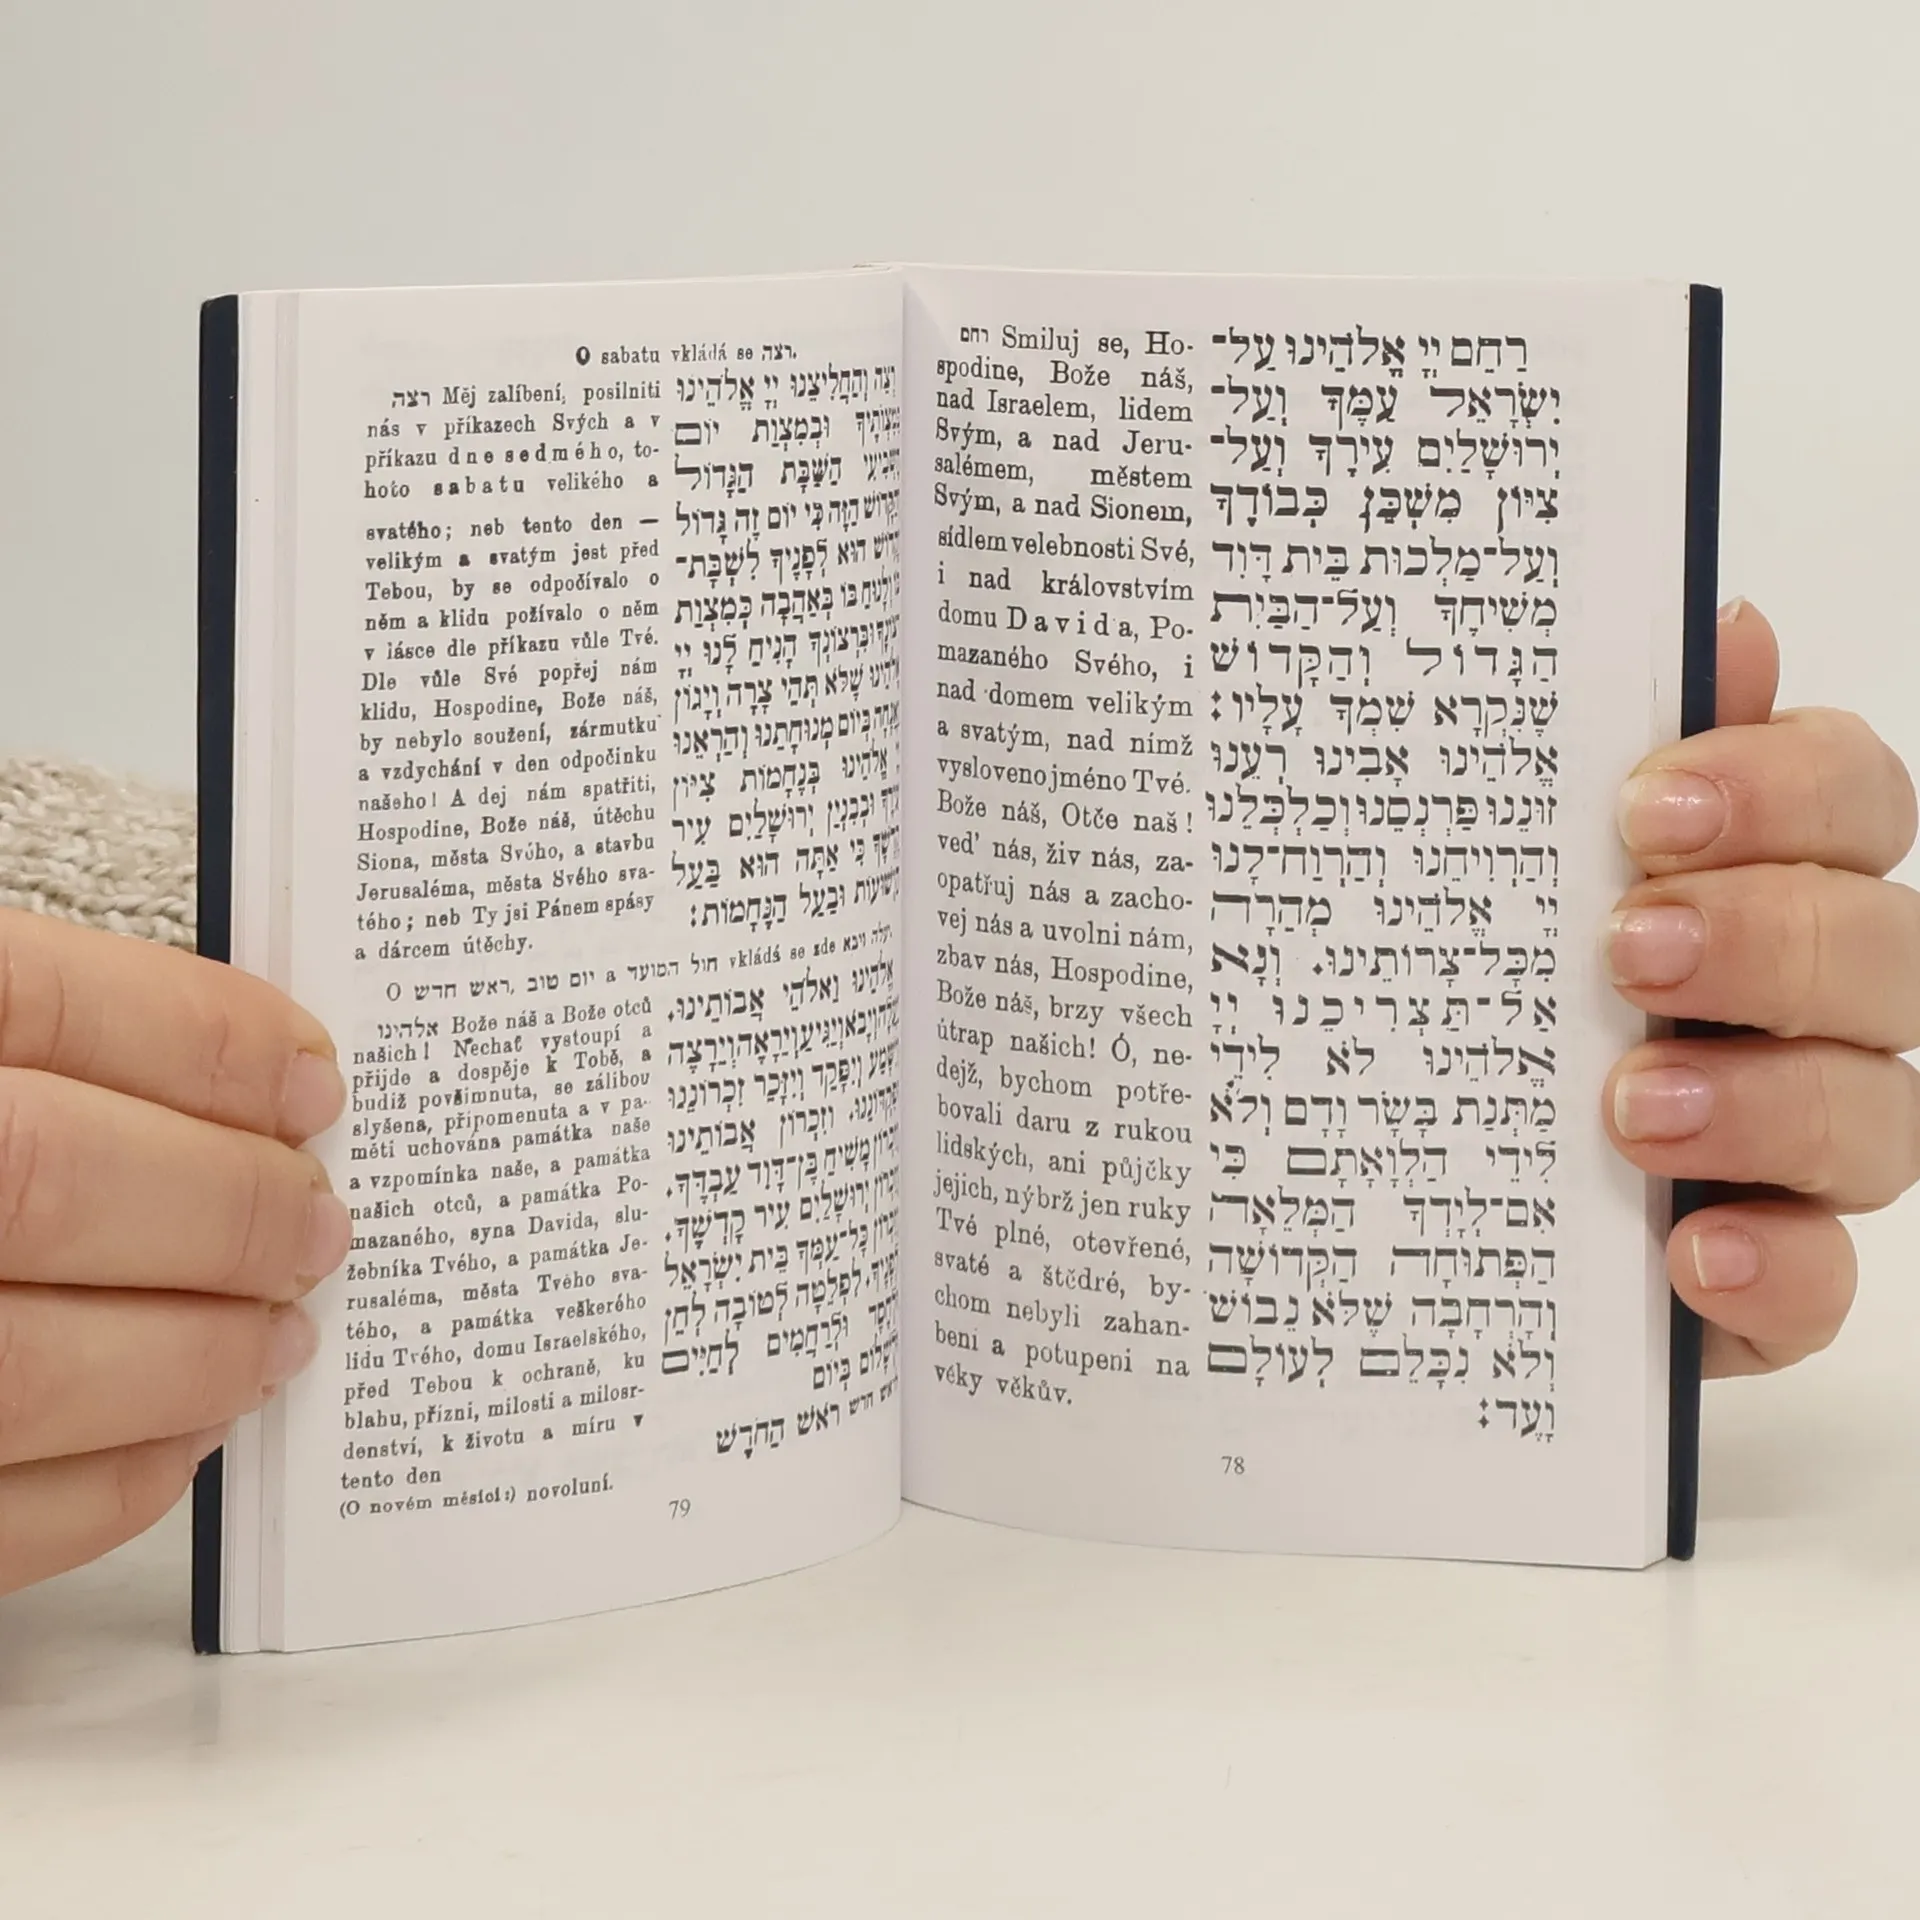 רַחֵם יְיָ אֱלֹהֵינוּ עַל־
יִשְׂרָאֵל עַמֶּךָ וְעַל־
יְרוּשָׁלַיִם עִירֶךָ וְעַל־
צִיּוֹן מִשְׁכַּן כְּבוֹדֶךָ
וְעַל־מַלְכוּת בֵּית דָּוִד
מְשִׁיחֶךָ וְעַל־הַבַּיִת
הַגָּדוֹל וְהַקָּדוֹשׁ
שֶׁנִּקְרָא שִׁמְךָ עָלָיו:
אֱלֹהֵינוּ אָבִינוּ רְעֵנוּ
זוּנֵנוּ פַּרְנְסֵנוּ וְכַלְכְּלֵנוּ
וְהַרְוִיחֵנוּ וְהַרְוַח־לָנוּ
יְיָ אֱלֹהֵינוּ מְהֵרָה
מִכָּל־צָרוֹתֵינוּ. וְנָא
אַל־תַּצְרִיכֵנוּ יְיָ
אֱלֹהֵינוּ לֹא לִידֵי
מַתְּנַת בָּשָׂר וָדָם וְלֹא
לִידֵי הַלְוָאָתָם כִּי
אִם־לְיָדְךָ הַמְּלֵאָה
הַפְּתוּחָה הַקְּדוֹשָׁה
וְהָרְחָבָה שֶׁלֹּא נֵבוֹשׁ
וְלֹא נִכָּלֵם לְעוֹלָם
וָעֶד:
רחם Smiluj se, Ho-
spodine, Bože náš,
nad Israelem, lidem
Svým, a nad Jeru-
salémem, městem
Svým, a nad Sionem,
sídlem velebnosti Své,
i nad královstvím
domu Davida, Po-
mazaného Svého, i
nad domem velikým
a svatým, nad nímž
vysloveno jméno Tvé.
Bože náš, Otče naš!
veď nás, živ nás, za-
opatřuj nás a zacho-
vej nás a uvolni nám,
zbav nás, Hospodine,
Bože náš, brzy všech
útrap našich! Ó, ne-
dejž, bychom potře-
bovali daru z rukou
lidských, ani půjčky
jejich, nýbrž jen ruky
Tvé plné, otevřené,
svaté a štědré, by-
chom nebyli zahan-
beni a potupeni na
věky věkův.
78
O sabatu vkládá se רצה.
רְצֵה וְהַחֲלִיצֵנוּ יְיָ אֱלֹהֵינוּ
בְּמִצְוֹתֶיךָ וּבְמִצְוַת יוֹם
הַשַּׁבָּת הַגָּדוֹל
הַזֶּה כִּי יוֹם זֶה גָּדוֹל
הוּא לְפָנֶיךָ לִשְׁבָּת־
בּוֹ בְּאַהֲבָה כְּמִצְוַת
הָנִיחַ לָנוּ יְיָ
שֶׁלֹּא תְּהִי צָרָה וְיָגוֹן
בְּיוֹם מְנוּחָתֵנוּ וְהַרְאֵנוּ
אֱלֹהֵינוּ בְּנֶחָמוֹת צִיּוֹן
וּבְבִנְיַן יְרוּשָׁלַיִם עִיר
כִּי אַתָּה הוּא בַּעַל
וּבַעַל הַנֶּחָמוֹת:
רצה Měj zalíbení, posilniti
nás v příkazech Svých a v
příkazu dne sedmého, to-
hoto sabatu velikého a
svatého; neb tento den —
velikým a svatým jest před
Tebou, by se odpočívalo o
něm a klidu požívalo o něm
v lásce dle příkazu vůle Tvé.
Dle vůle Své popřej nám
klidu, Hospodine, Bože náš,
by nebylo soužení, zármutku
a vzdychání v den odpočinku
našeho! A dej nám spatřiti,
Hospodine, Bože náš, útěchu
Siona, města Svého, a stavbu
Jerusaléma, města Svého sva-
tého; neb Ty jsi Pánem spásy
a dárcem útěchy.
O ראש חדש, יום טוב a חול המועד vkládá se zde יעלה ויבא.
אֱלֹהֵינוּ וֵאלֹהֵי אֲבוֹתֵינוּ.
וְיָבֹא וְיַגִּיעַ וְיֵרָאֶה וְיֵרָצֶה
וְיִפָּקֵד וְיִזָּכֵר זִכְרוֹנֵנוּ
וְזִכְרוֹן אֲבוֹתֵינוּ
מָשִׁיחַ בֶּן־דָּוִד עַבְדֶּךָ.
יְרוּשָׁלַיִם עִיר קָדְשֶׁךָ.
כָּל־עַמְּךָ בֵּית יִשְׂרָאֵל
לִפְלֵטָה לְטוֹבָה לְחֵן
וּלְרַחֲמִים לְחַיִּים
בְּיוֹם
ראש חדש רֹאשׁ הַחֹדֶשׁ
אלהינו Bože náš a Bože otců
našich! Nechať vystoupí a
přijde a dospěje k Tobě, a
budiž povšimnuta, se zálibou
slyšena, připomenuta a v pa-
měti uchována památka naše
a vzpomínka naše, a památka
našich otců, a památka Po-
mazaného, syna Davida, slu-
žebníka Tvého, a památka Je-
rusaléma, města Tvého sva-
tého, a památka veškerého
lidu Tvého, domu Israelského,
před Tebou k ochraně, ku
blahu, přízni, milosti a milosr-
denství, k životu a míru v
tento den
(O novém měsíci:) novoluní.
79